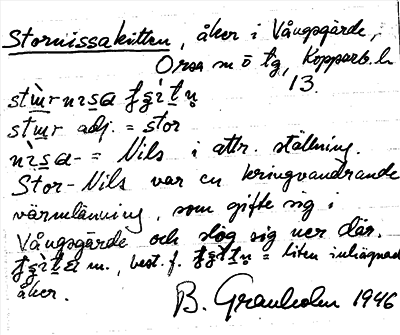 Stornissakitten, åker i Vångsgärde,
Orsa m o tg, Kopparb. l.
13.
adj. = stor
= Nils i attr. ställning.
Stor-Nils var en kringvandrande
värmlänning, som gifte sig i
Vångsgärde och slog sig ner där.
m., best. f. = liten inhägnad
åker.
B. Granholm 1946